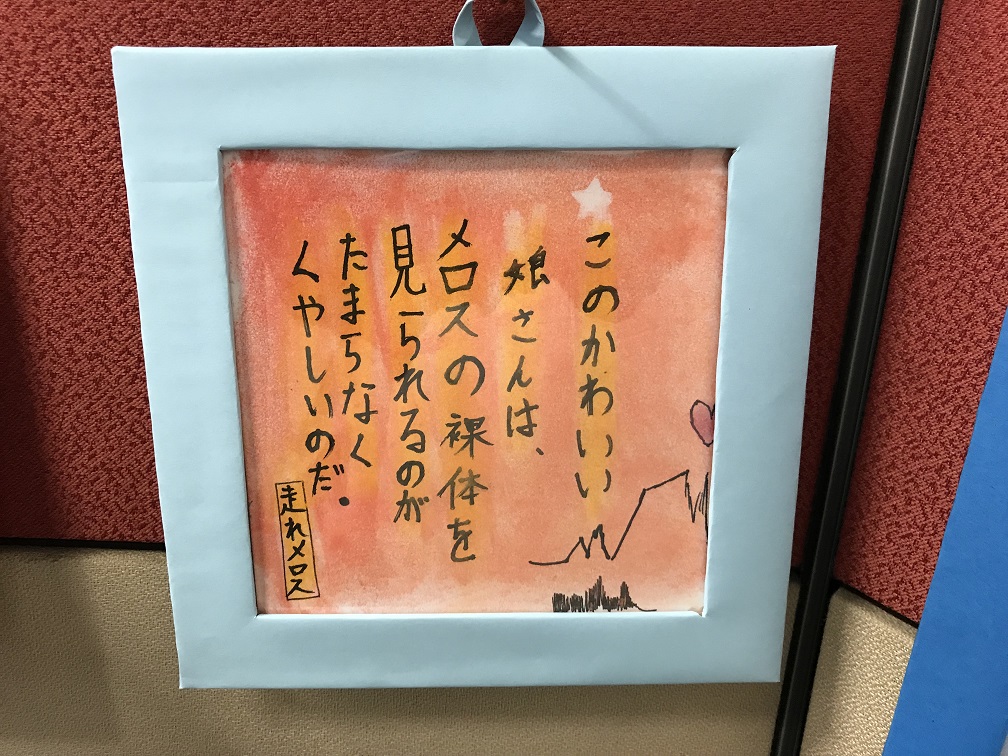 このかわいい
娘さんは、
メロスの裸体を
見られるのが
たまらなく
くやしいのだ。
走れメロス